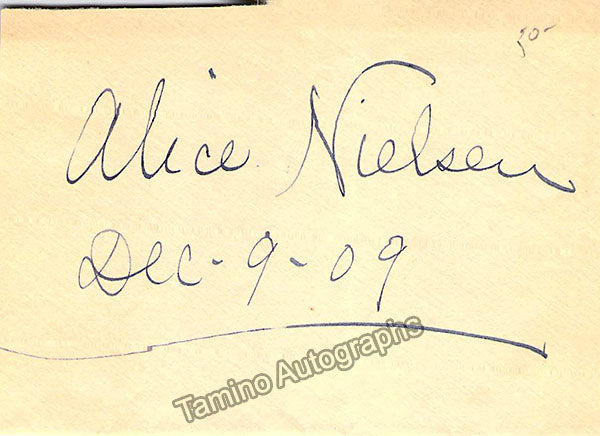 50-
Alice Nielsen
Dec-9-09
Tamino Autographs